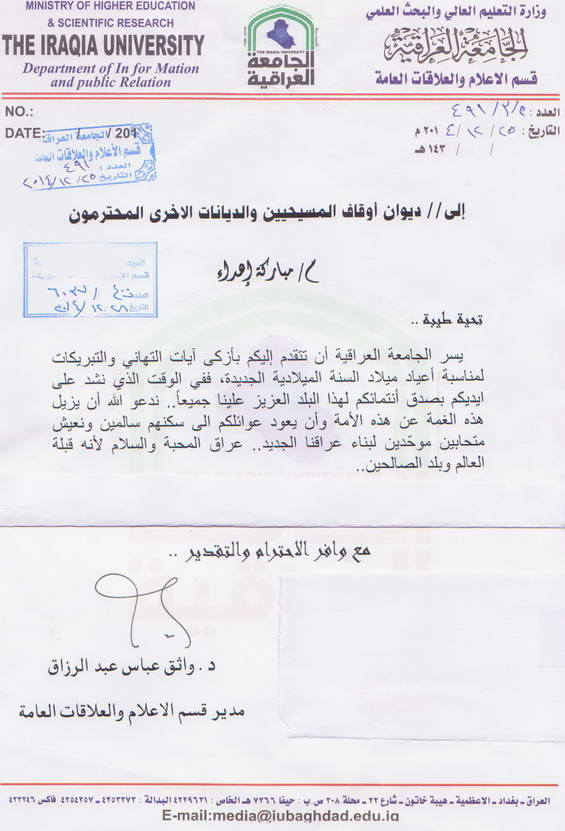 MINISTRY OF HIGHER EDUCATION
& SCIENTIFIC RESEARCH
THE IRAQIA UNIVERSITY
Department of In for Mation
and public Relation
THE IRAQIA UNIVERSITY
الجامعة
العراقية
وزارة التعليم العالي والبحث العلمي
الجامعة العراقية
قسم الاعلام والعلاقات العامة
NO.:
DATE: / / 201
العدد : ٤٩١/٢/٥
التاريخ : ٢٥/ ١٢/ ٢٠١٤ م
/ / ١٤٣ هـ
الجامعة العراقية
قسم الأعلام والعلاقات العامة
العدد : ٤٩١
التاريخ ٢٠١٤/١٢/٢٥
إلى // ديوان أوقاف المسيحيين والديانات الاخرى المحترمون
م/ مباركة إهداء
العدد
التاريخ
تحية طيبة ..
يسر الجامعة العراقية أن تتقدم إليكم بأزكى آيات التهاني والتبريكات
لمناسبة أعياد ميلاد السنة الميلادية الجديدة، ففي الوقت الذي نشد على
ايديكم بصدق أنتمائكم لهذا البلد العزيز علينا جميعاً.. ندعو الله أن يزيل
هذه الغمة عن هذه الأمة وأن يعود عوائلكم الى سكنهم سالمين ونعيش
متحابين موحّدين لبناء عراقنا الجديد.. عراق المحبة والسلام لأنه قبلة
العالم وبلد الصالحين..
مع وافر الاحترام والتقدير ..
د . واثق عباس عبد الرزاق
مدير قسم الاعلام والعلاقات العامة
العراق ـ بغداد ـ الاعظمية ـ هيبة خاتون ـ شارع ٢٢ ـ محلة ٣٠٨ ص.ب : حيفا ٧٣٦٦ هـ الخاص : ٤٢٢٩٦٣١ البدالة : ٤٢٥٣٢٧٣ ـ ٤٢٥٤٢٥٧ فاكس ٤٢٢٢٤٦
E-mail:media@iubaghdad.edu.iq